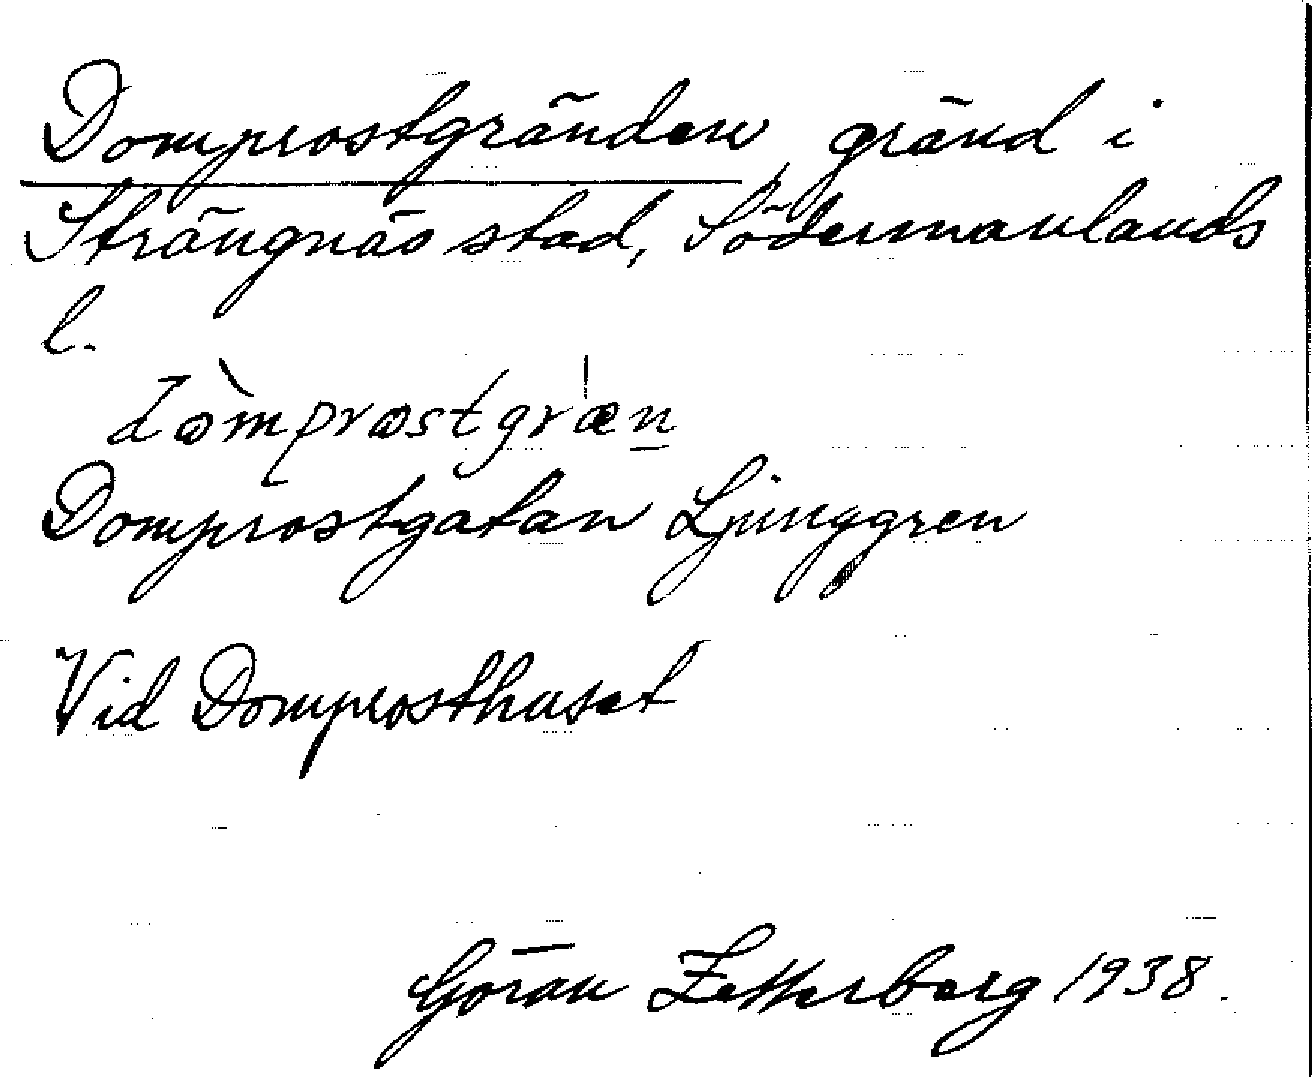 Domprostgränden, gränd i
Strängnäs stad, Södermanlands
l.
dòmprostgræ'n
Domprostgatan Ljunggren
Vid Domprosthuset
Göran Zetterberg 1938.